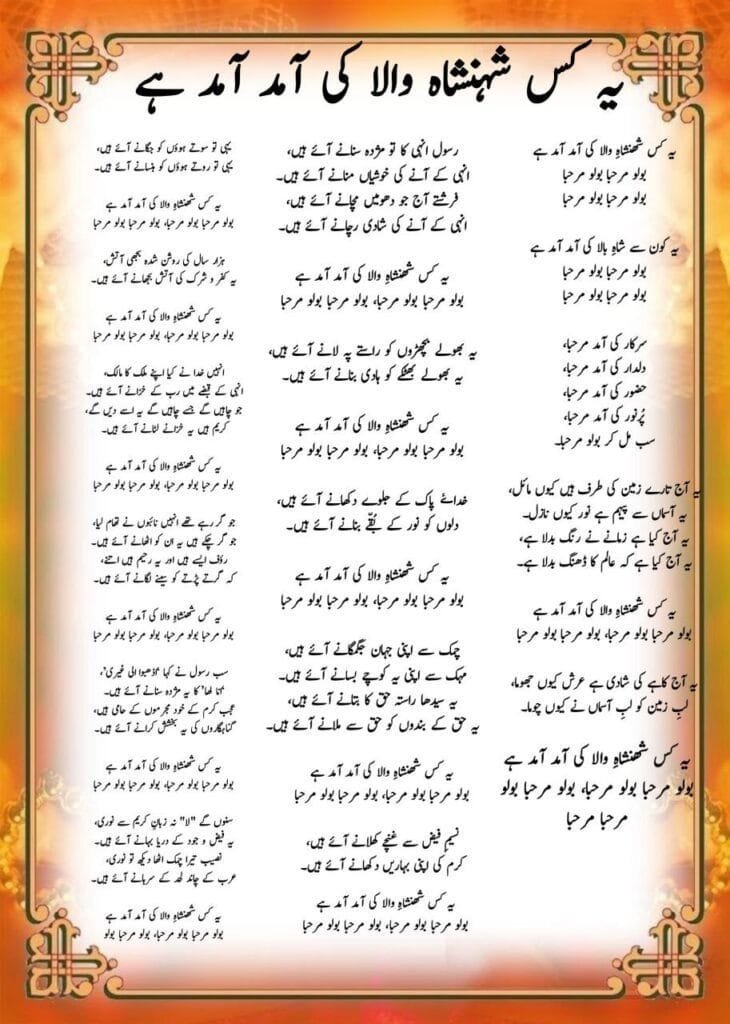 یہ کس شہنشاہ والا کی آمد آمد ہے
یہ کس شھنشاہِ والا کی آمد آمد ہے
بولو مرحبا بولو مرحبا
بولو مرحبا بولو مرحبا
یہ کون سے شاہِ بالا کی آمد آمد ہے
بولو مرحبا بولو مرحبا
بولو مرحبا بولو مرحبا
سرکار کی آمد مرحبا،
دلدار کی آمد مرحبا،
حضور کی آمد مرحبا،
پُرنور کی آمد مرحبا،
سب مل کر بولو مرحبا۔
یہ آج تارے زمین کی طرف ہیں کیوں مائل،
یہ آسماں سے پیہم ہے نور کیوں نازل۔
یہ آج کیا ہے زمانے نے رنگ بدلا ہے،
یہ آج کیا ہے کہ عالم کا ڈھنگ بدلا ہے۔
یہ کس شھنشاہِ والا کی آمد آمد ہے
بولو مرحبا بولو مرحبا، بولو مرحبا بولو مرحبا
یہ آج کاہے کی شادی ہے عرش کیوں جھوما،
لبِ زمین کو لبِ آسماں نے کیوں چوما۔
یہ کس شھنشاہِ والا کی آمد آمد ہے
بولو مرحبا بولو مرحبا، بولو مرحبا بولو
مرحبا مرحبا
رسول انہی کا تو مژدہ سنانے آئے ہیں،
انہی کے آنے کی خوشیاں منانے آئے ہیں۔
فرشتے آج جو دھومیں مچانے آئے ہیں،
انہی کے آنے کی شادی رچانے آئے ہیں۔
یہ کس شھنشاہِ والا کی آمد آمد ہے
بولو مرحبا بولو مرحبا، بولو مرحبا بولو مرحبا
یہ بھولے بچھڑوں کو راستے پہ لانے آئے ہیں،
یہ بھولے بھٹکے کو ہادی بنانے آئے ہیں۔
یہ کس شھنشاہِ والا کی آمد آمد ہے
بولو مرحبا بولو مرحبا، بولو مرحبا بولو مرحبا
خدائے پاک کے جلوے دکھانے آئے ہیں،
دلوں کو نور کے بُقّے بنانے آئے ہیں۔
یہ کس شھنشاہِ والا کی آمد آمد ہے
بولو مرحبا بولو مرحبا، بولو مرحبا بولو مرحبا
چمک سے اپنی جہان جگمگانے آئے ہیں،
مہک سے اپنی یہ کوچے بسانے آئے ہیں۔
یہ سیدھا راستہ حق کا بتانے آئے ہیں،
یہ حق کے بندوں کو حق سے ملانے آئے ہیں۔
یہ کس شھنشاہِ والا کی آمد آمد ہے
بولو مرحبا بولو مرحبا، بولو مرحبا بولو مرحبا
نسیمِ فیض سے غنچے کھلانے آئے ہیں،
کرم کی اپنی بہاریں دکھانے آئے ہیں۔
یہ کس شھنشاہِ والا کی آمد آمد ہے
بولو مرحبا بولو مرحبا، بولو مرحبا بولو مرحبا
یہی تو سوتے ہوؤں کو جگانے آئے ہیں،
یہی تو روتے ہوؤں کو ہنسانے آئے ہیں۔
یہ کس شھنشاہِ والا کی آمد آمد ہے
بولو مرحبا بولو مرحبا، بولو مرحبا بولو مرحبا
ہزار سال کی روشن شدہ بجھی آتش،
یہ کفر و شرک کی آتش بجھانے آئے ہیں۔
یہ کس شھنشاہِ والا کی آمد آمد ہے
بولو مرحبا بولو مرحبا، بولو مرحبا بولو مرحبا
انہیں خدا نے کیا اپنے ملک کا مالک،
انہی کے قبضے میں رب کے خزانے آئے ہیں۔
جو چاہیں گے جسے چاہیں گے یہ اسے دیں گے،
کریم ہیں یہ خزانے لٹانے آئے ہیں۔
یہ کس شھنشاہِ والا کی آمد آمد ہے
بولو مرحبا بولو مرحبا، بولو مرحبا بولو مرحبا
جو گر رہے تھے انہیں نائبوں نے تھام لیا،
جو گر چکے ہیں یہ ان کو اٹھانے آئے ہیں۔
رؤف ایسے ہیں اور یہ رحیم ہیں اتنے،
کہ گرتے پڑتے کو سینے لگانے آئے ہیں۔
یہ کس شھنشاہِ والا کی آمد آمد ہے
بولو مرحبا بولو مرحبا، بولو مرحبا بولو مرحبا
سب رسول نے کہا 'اذھبوا الی غیری'،
'انا لھا' کا یہ مژدہ سنانے آئے ہیں۔
عجب کرم کے خود مجرموں کے حامی ہیں،
گناہگاروں کی یہ بخشش کرانے آئے ہیں۔
یہ کس شھنشاہِ والا کی آمد آمد ہے
بولو مرحبا بولو مرحبا، بولو مرحبا بولو مرحبا
سنوں گے "لا" نہ زبانِ کریم سے نوری،
یہ فیض و جود کے دریا بہانے آئے ہیں۔
نصیب تیرا چمک اٹھا دیکھ تو نوری،
عرب کے چاند لحد کے سرہانے آئے ہیں۔
یہ کس شھنشاہِ والا کی آمد آمد ہے
بولو مرحبا بولو مرحبا، بولو مرحبا بولو